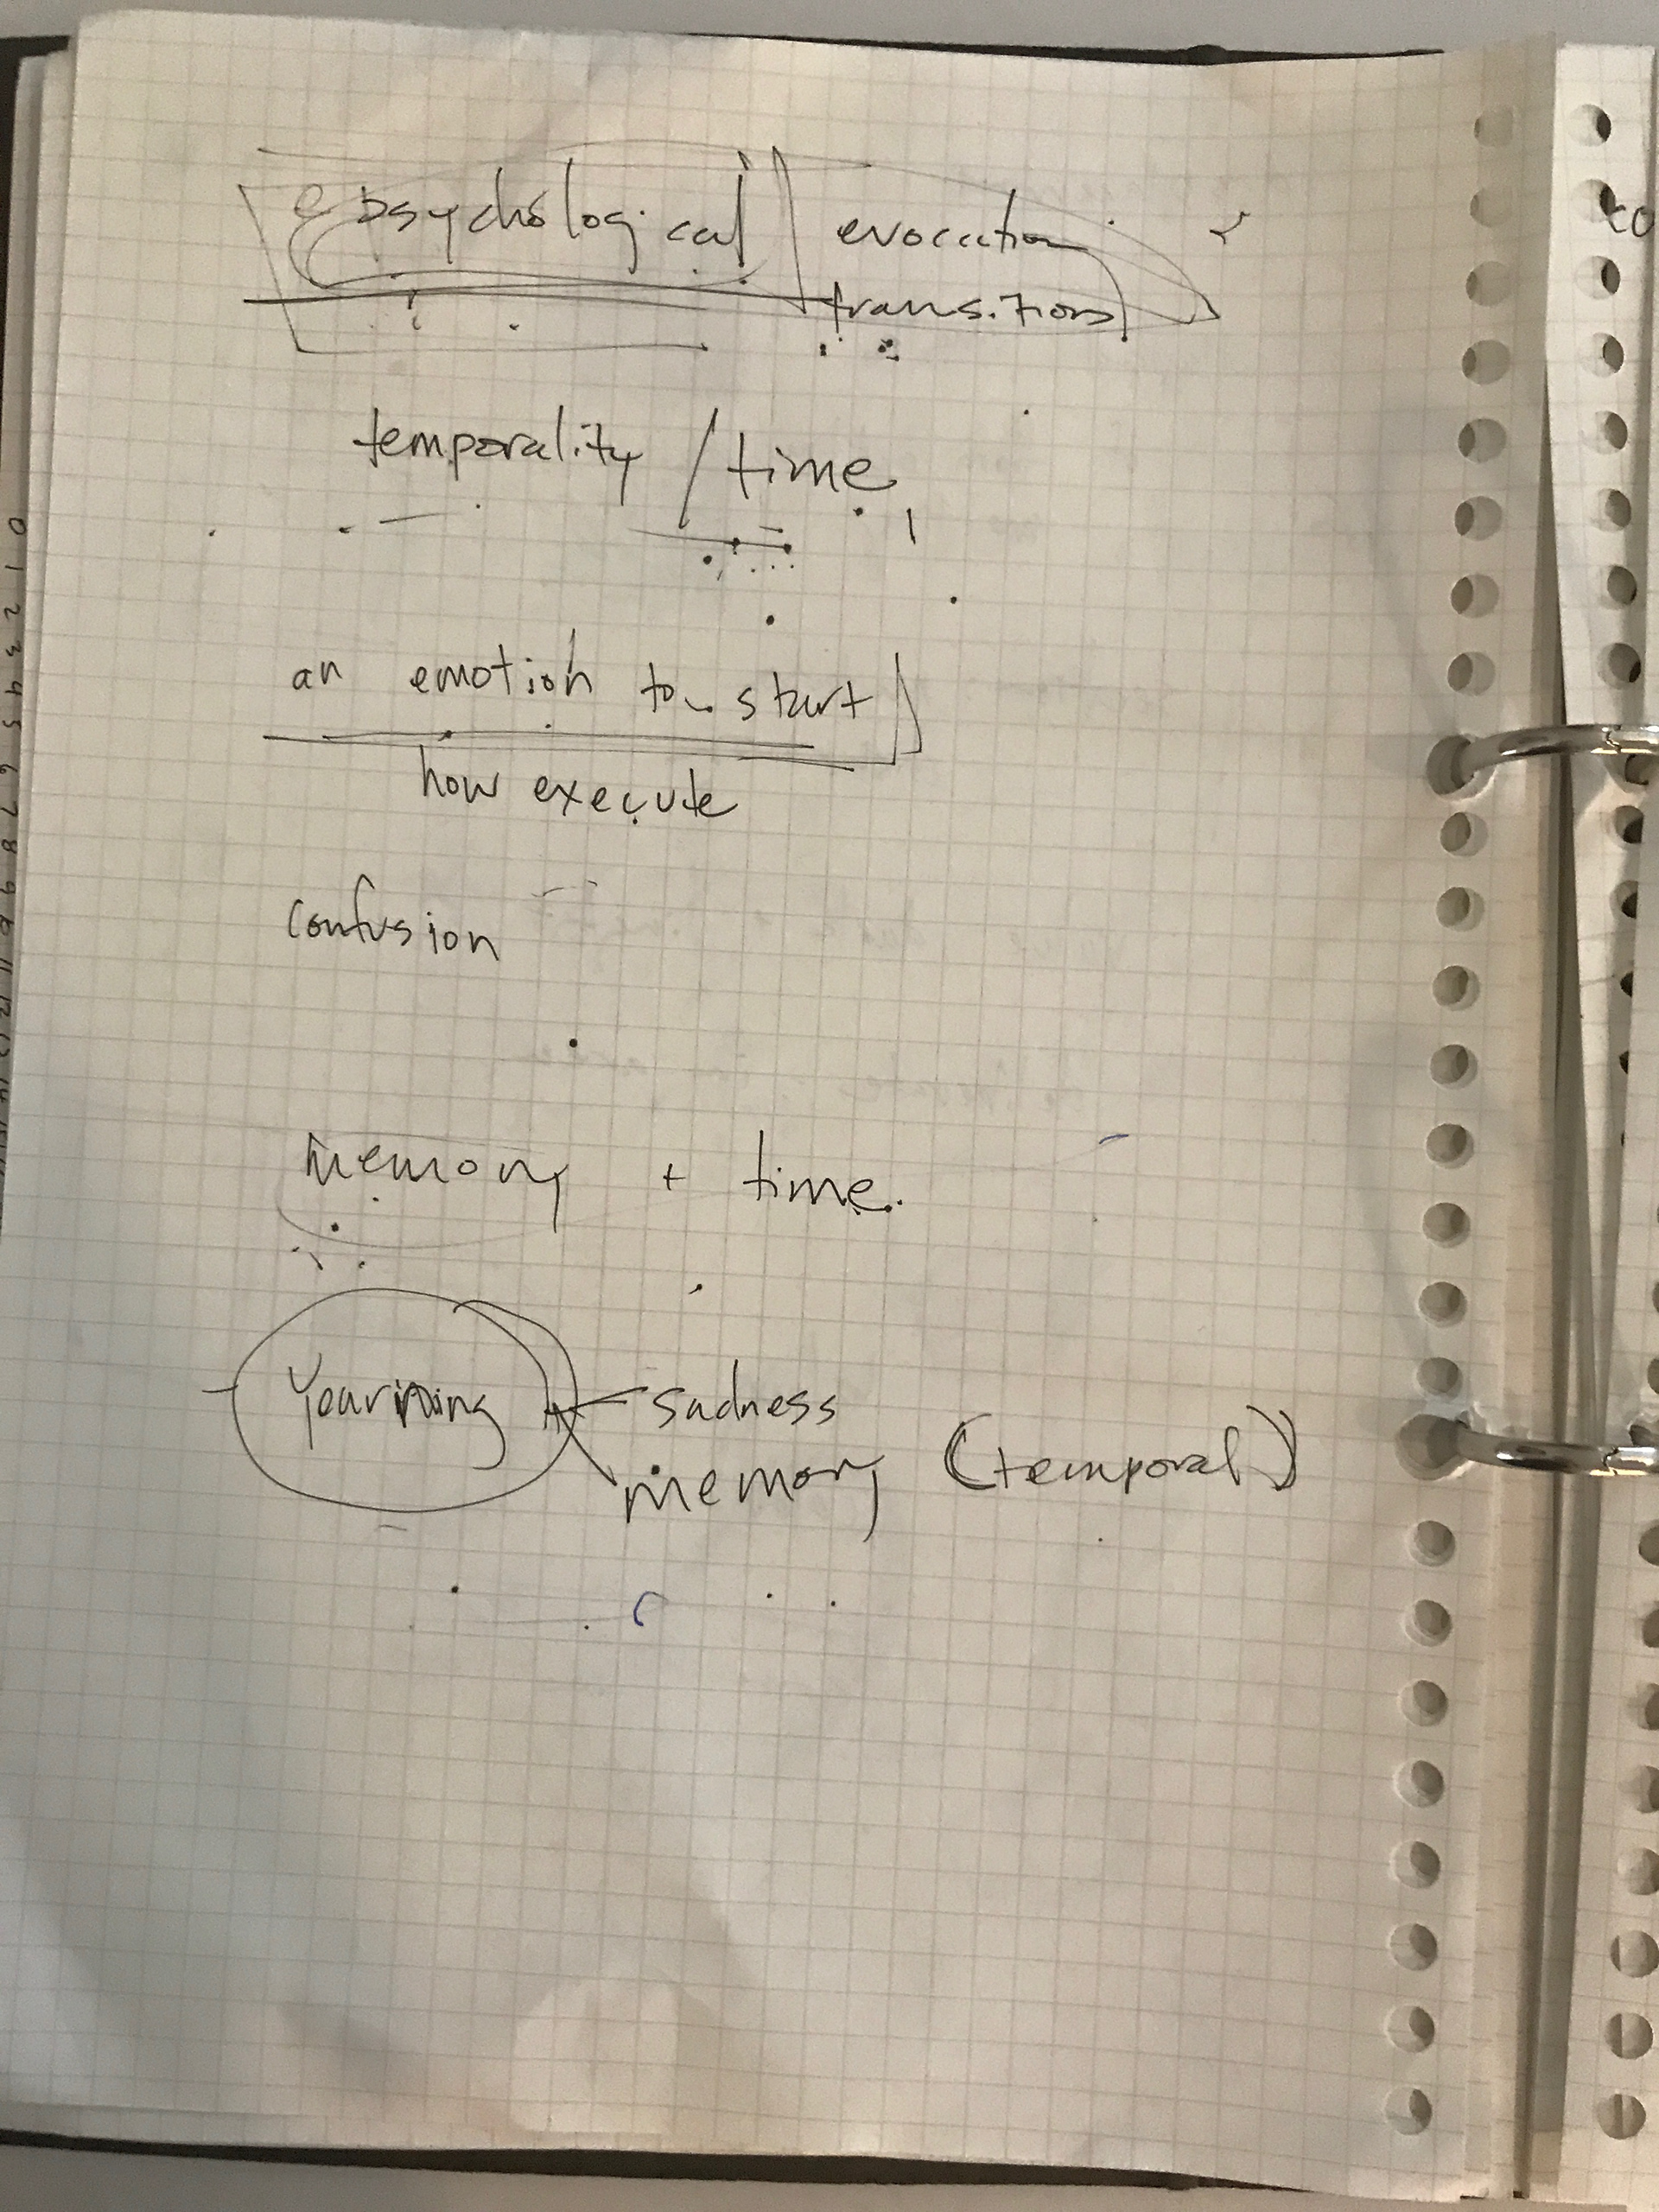 psychological / evocation
transitions
temporality / time
an emotion to start
how execute
confusion
memory + time.
Yearning sadness
memory (temporal)
0 1 2 3 4 5 6 7 8 9